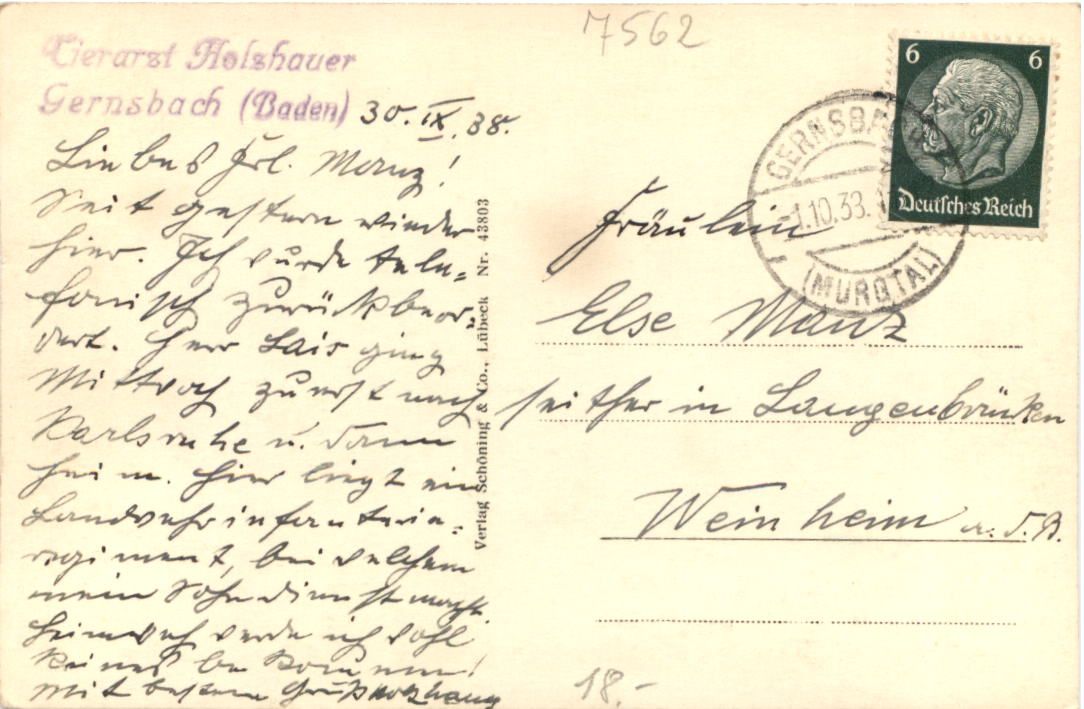 Tierarzt Holzhauer
Gernsbach (Baden) 30. IX. 38.
Liebes Frl. Manz!
Seit gestern wieder
hier. Ich wurde tele=
fonisch zurückbeor=
dert. Herr Lais ging
Mittwoch zuerst nach
Karlsruhe u. dann
heim. Hier liegt ein
Landwehrinfanterie=
regiment, bei welchem
mein Sohn Dienst macht.
Heimweh werde ich wohl
keines bekommen!
Mit bestem Gruß
Verlag Schöning & Co., Lübeck Nr. 43803
7562
6 6
Deutsches Reich
GERNSBACH
-1.10.38.
(MURGTAL)
Fräulein
Else Manz
seither in Langenbrücken
Weinheim a. d. B.
18.-